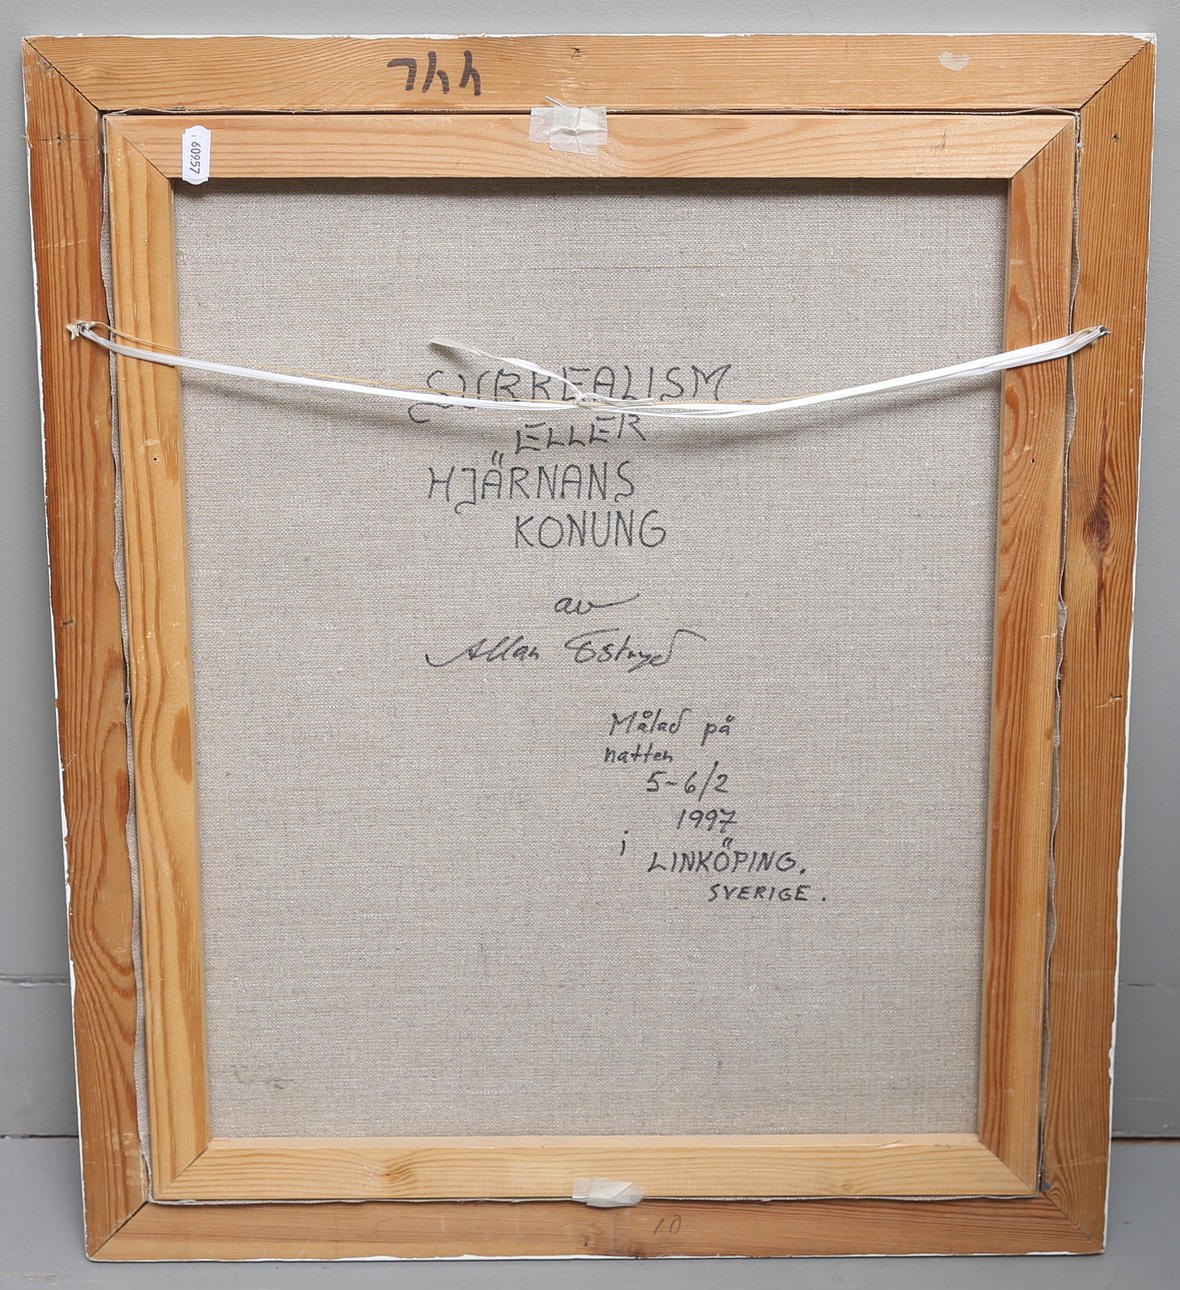 744
60957
SURREALISM
ELLER
HJÄRNANS
KONUNG
av
Allan
Målad på
natten
5-6/2
1997
i LINKÖPING.
SVERIGE.
10